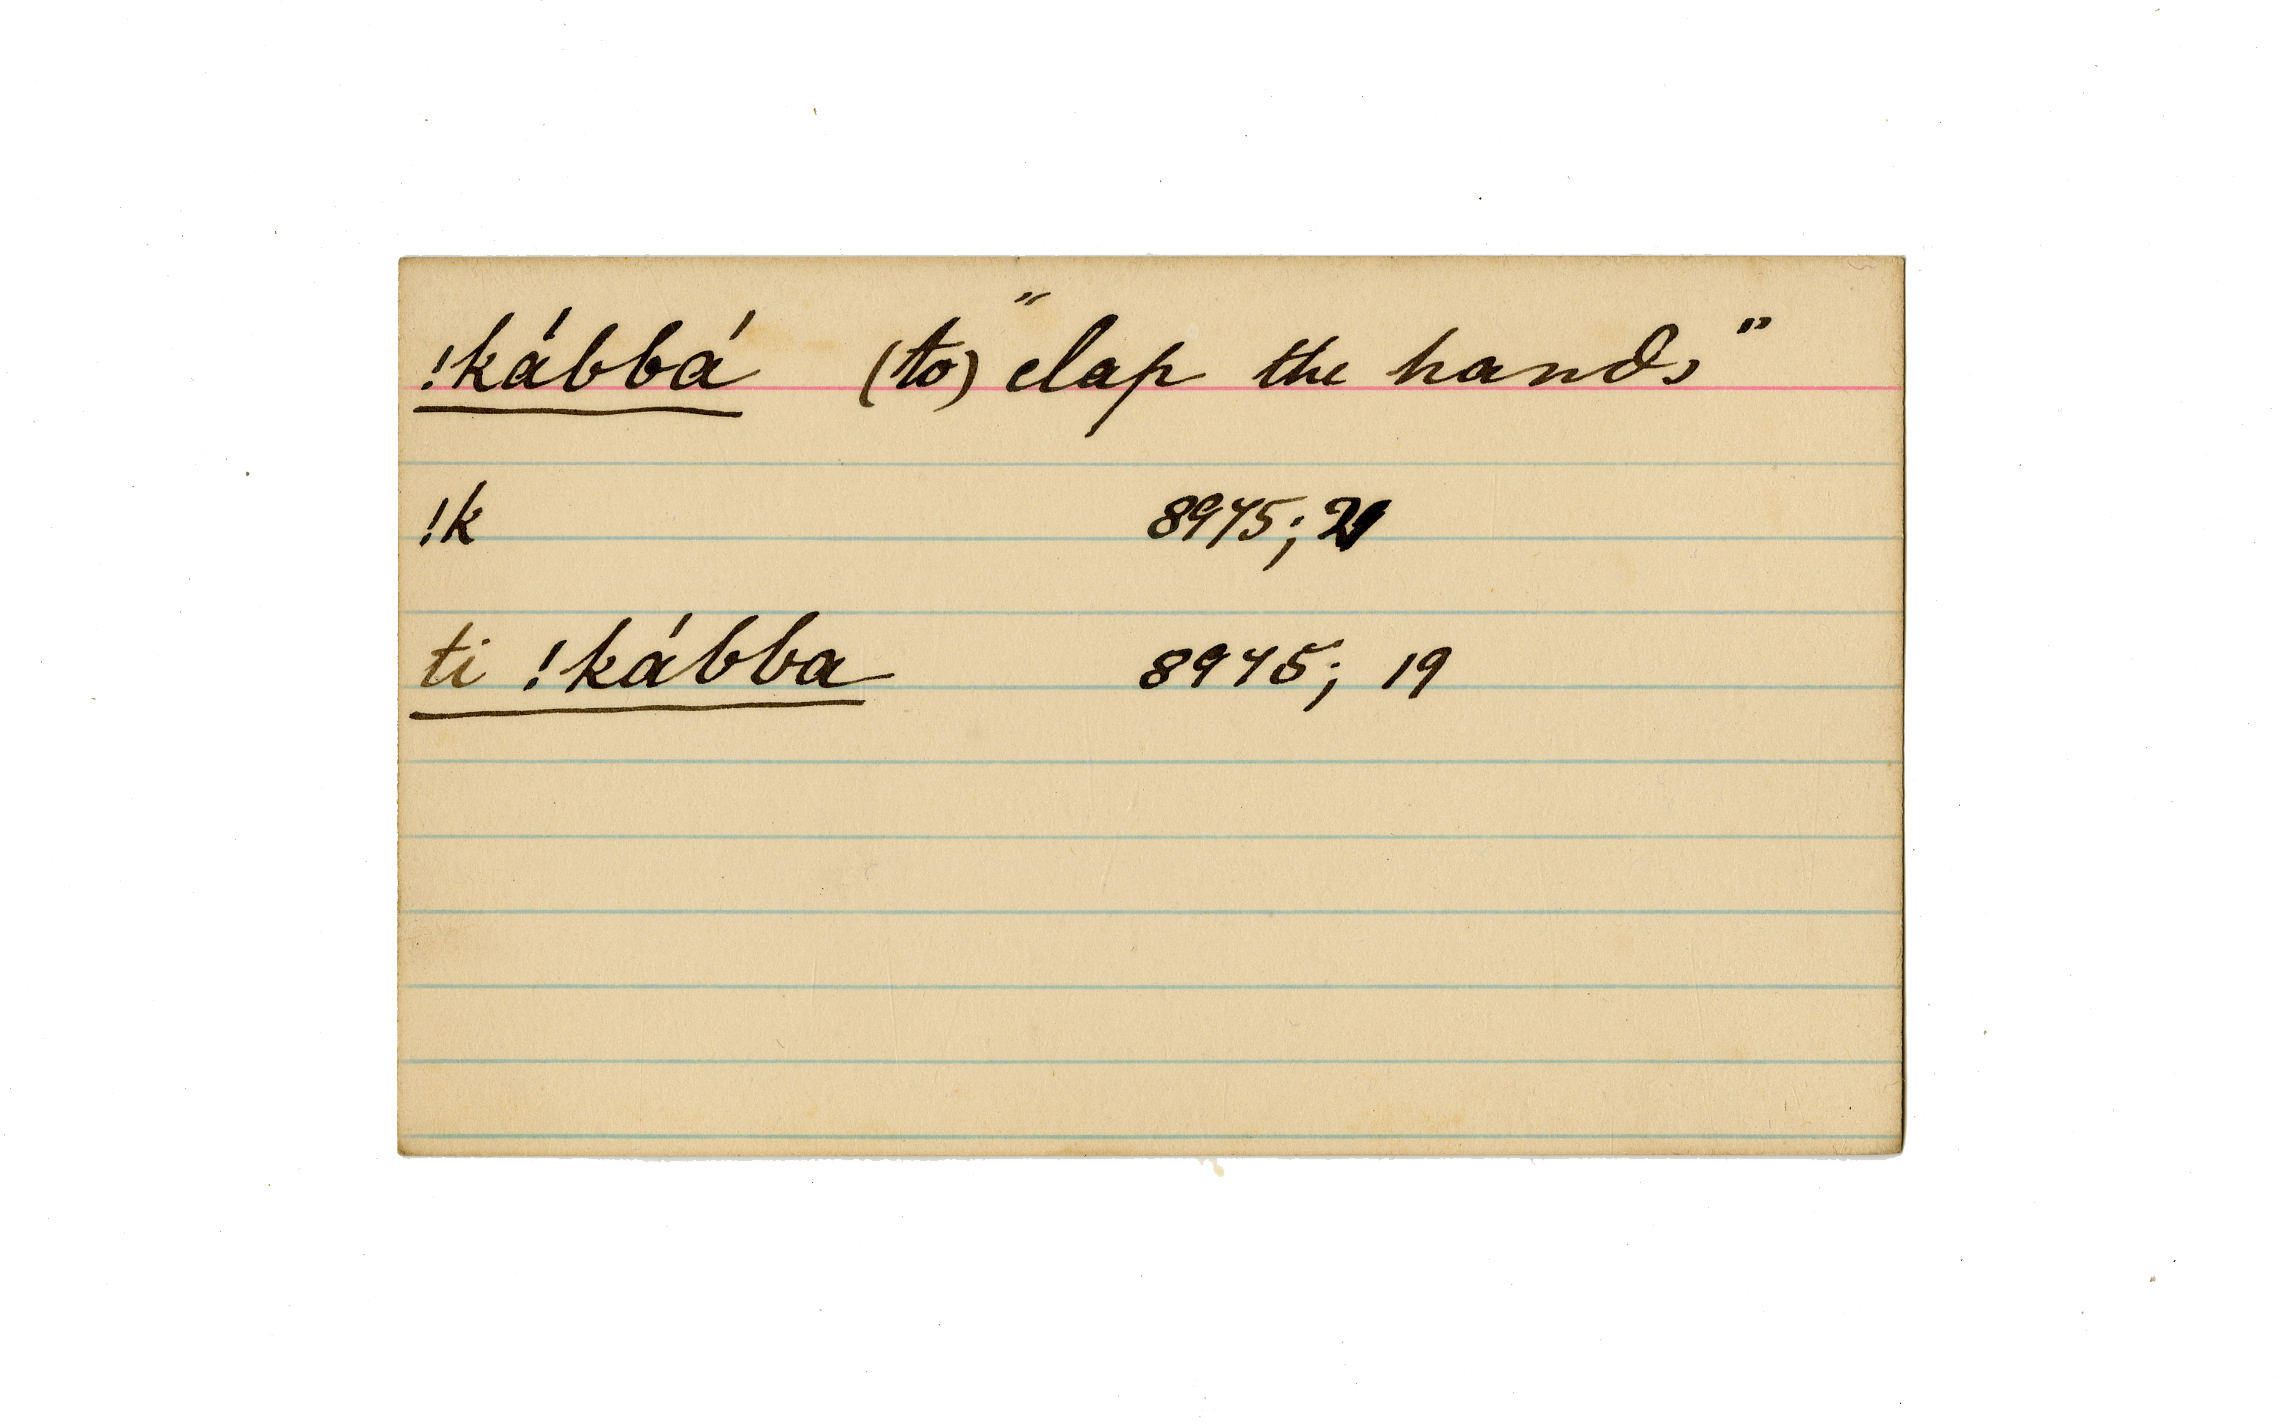 !kábbá (to) "clap the hands"
!k 8945; 21
ti !kábba 8945; 19